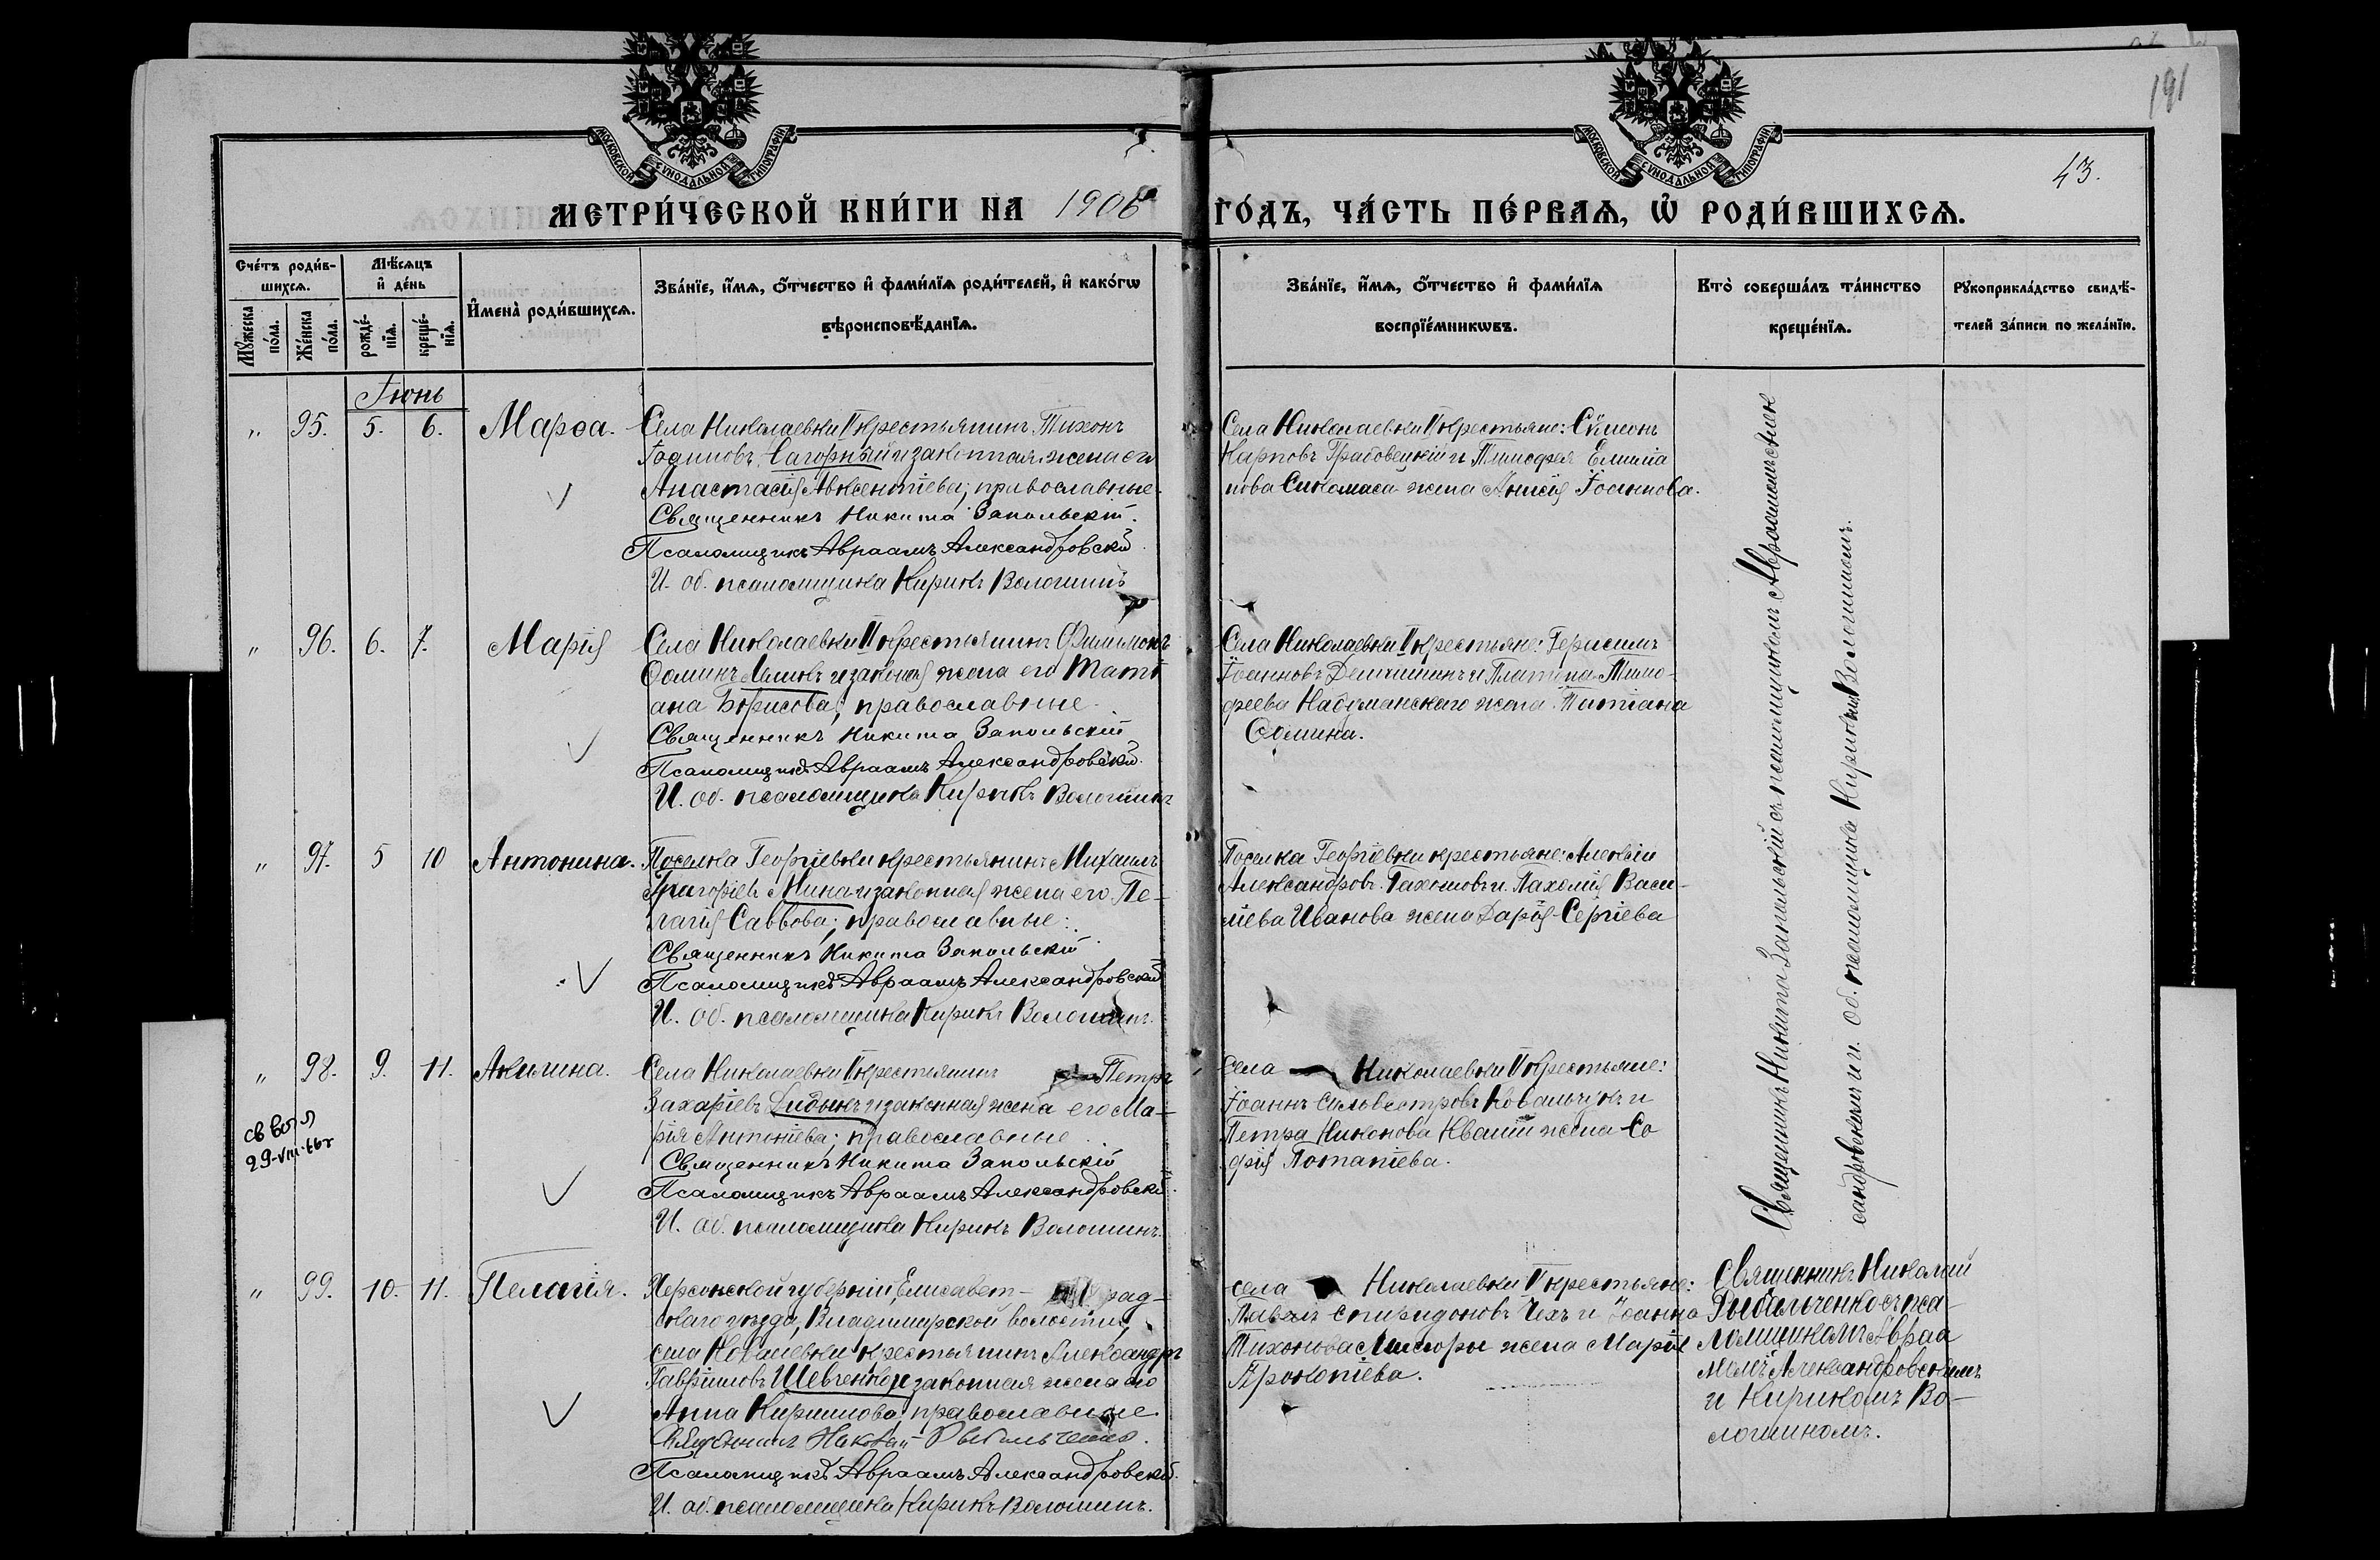 191
43.
МОСКОВСКОЙ СѴНОДАЛЬНОЙ ТИПОГРАФІИ
МОСКОВСКОЙ СѴНОДАЛЬНОЙ ТИПОГРАФІИ
МЕТРИ́ЧЕСКОЙ КНИ́ГИ НА 1906 ГО́ДЪ, ЧА́СТЬ ПЕ́РВАЯ, Ѡ РОДИ́ВШИХСЯ.
Сче́тъ роди́в-
шихся.
Му́жеска
по́ла.
Же́нска
по́ла.
Мѣ́сяцъ
и де́нь
рожде́-
нія.
креще́-
нія.
Имена̀ роди́вшихся.
Зва́ніе, и́мя, о́тчество и фами́лія роди́телей, и како́гѡ
вѣроисповѣ́данія.
Зва́ніе, и́мя, о́тчество и фами́лія
воспріе́мникѡвъ.
Кто̀ соверша́лъ та́инство
креще́нія.
Рꙋкоприкла́дство свидѣ́-
телей за́писи по жела́нію.
Іюнь
" 95. 5. 6. Марѳа.
Села Николаевки II крестьянинъ Тихонъ
Іоанновъ Нагорный и законная жена его
Анастасія Авксентіева; православные.
Священникъ Никита Запольскій.
Псаломщикъ Авраамъ Александровскій.
И. об. псаломщика Кирикъ Волошинъ
Села Николаевки II крестьяне: Сѵмеонъ
Карповъ Грабовецкій и Тимофея Емилiа
нова жена Анисія Іоаннова.
" 96. 6. 7. Марія
Села Николаевки II крестьянинъ Филимонъ
Ѳоминъ и законная жена его Таті
ана Борисова; православные
Священникъ Никита Запольскій
Псаломщикъ Авраамъ Александровскій.
И. об. псаломщика Кирикъ Волошинъ
Села Николаевки II крестьяне: Герасимъ
Іоанновъ и Платона Тимо-
феева Надуманскаго жена Татіана
Ѳомина.
" 97. 5 10 Антонина.
Поселка Георгіевки крестьянинъ Михаилъ
Григоріевъ Мина и законная жена его Пе-
лагія Саввова; православные:
Священникъ Никита Запольскій
Псаломщикъ Авраамъ Александровскій
И. об. псаломщика Кирикъ Волошинъ.
Поселка Георгіевки крестьяне: Алексій
Александровъ и Пахомія Васи-
ліева Иванова жена Дарія Сергіева
" 98. 9. 11. Акилина.
св во
29-VIII-66г
Села Николаевки II крестьянинъ Петръ
Захаріевъ и законная жена его Ма-
рія Антоніева; православные
Священникъ Никита Запольскій
Псаломщикъ Авраамъ Александровскій.
И. об. псаломщика Кирикъ Волошинъ.
Села Николаевки II крестьяне:
Іоаннъ Сильвестровъ Ковальчукъ и
Петра Никонова жена Со
фія Потапіева.
Священникъ Никита Запольскій съ псаломщикомъ Авраамомъ Алек
сандровскимъ и и. об. псаломщика Кирикомъ Волошиномъ.
" 99. 10. 11. Пелагія.
Херсонской губерніи, Елисавет- град-
скаго уѣзда, Владимірской волости,
села крестьянинъ Александръ
Гавріиловъ Шевченко и законная жена его
Анна Кириллова; православные
Священникъ Николай Рыбальченко.
Псаломщикъ Авраамъ Александровскій.
И. об. псаломщика Кирикъ Волошинъ.
села Николаевки II крестьяне:
Павелъ Спиридоновъ Чехъ и Іоанна
Тихонова жена Марія
Прокопіева.
Священникъ Николай
Рыбальченко съ пса-
ломщикомъ Авраа
момъ Александровскимъ
и Кирикомъ Во-
лошиномъ.